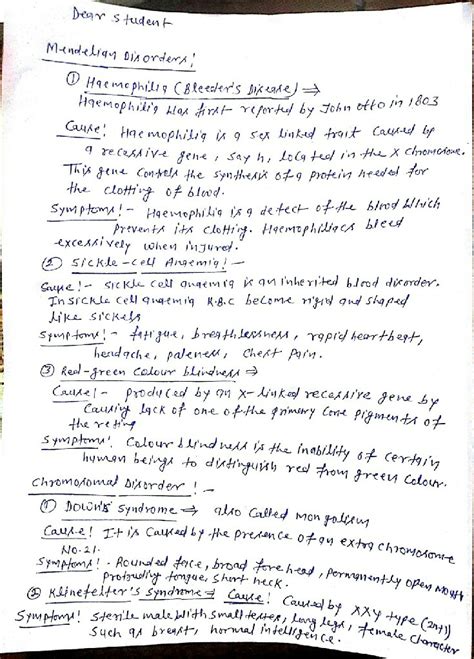 Dear Student
Mendelian Disorders!
① Haemophilia (Bleeder's Disease) ⇒
Haemophilia was first reported by John Otto in 1803
Cause! Haemophilia is a sex linked trait Caused by
a recessive gene, say h, located in the X chromosome.
This gene controls the synthesis of a protein needed for
the clotting of blood.
Symptoms!- Haemophilia is a defect of the blood which
prevents its clotting. Haemophiliacs bleed
excessively when injured.
② Sickle-Cell Anaemia!-
Cause!- Sickle cell anaemia is an inherited blood disorder.
In sickle cell anaemia R.B.C become rigid and shaped
like sickels
Symptoms!- fatigue, breathlessness, rapid heartbeat,
headache, paleness, Chest Pain.
③ Red-green Colour blindness ⇒
Cause!- produced by an X-linked recessive gene by
Causing lack of one of the primary Cone pigments of
the retina
Symptoms! Colour blindness is the inability of certain
human beings to distinguish red from green Colour.
Chromosomal Disorder!-
① Down's Syndrome ⇒ also Called mongolism
Cause! It is Caused by the presence of an extra chromosome
No. 21.
Symptoms!- Rounded face, broad forehead, permanently open mouth
protruding tongue, Short neck.
② Klinefelter's Syndrome ⇒ Cause! Caused by XXY type (2n+1)
Symptoms! Sterile male with small testes, long legs, female character
Such as breast, normal intelligence.